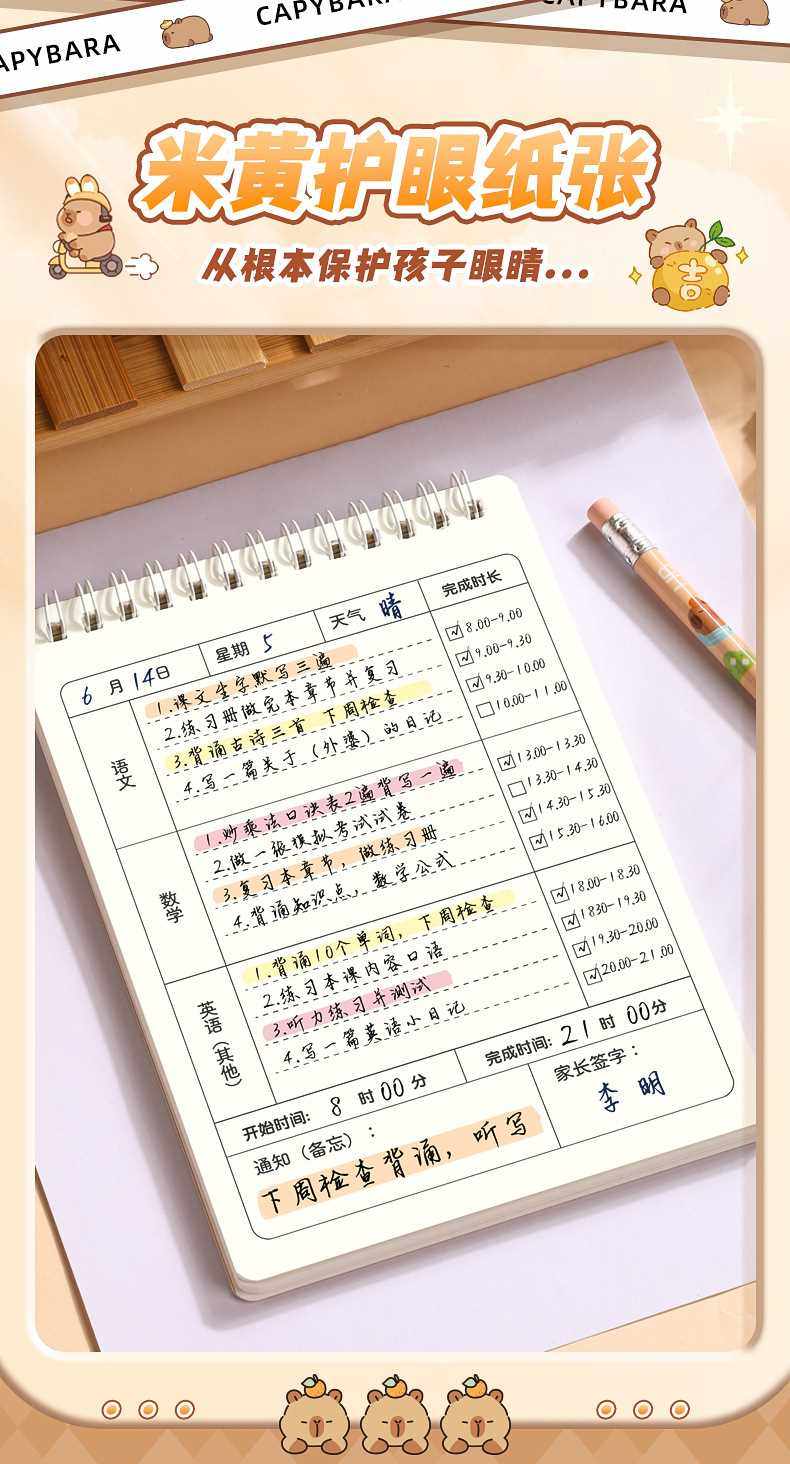 CAPYBARA
CAPYBARA
CAPYBARA
米黄护眼纸张
从根本保护孩子眼睛...
吉
6月14日 星期 5 天气 晴 完成时长
语文
1.课文生字默写三遍
2.练习册做完本章节并复习
3.背诵古诗三首 下周检查
4.写一篇关于（外婆）的日记
8.00-9.00
9.00-9.30
9.30-10.00
10.00-11.00
数学
1.抄乘法口诀表2遍背写一遍
2.做一张模拟考试试卷
3.复习本章节，做练习册
4.背诵知识点，数学公式
13.00-13.30
13.30-14.30
14.30-15.30
15.30-16.00
英语（其他）
1.背诵10个单词，下周检查
2.练习本课内容口语
3.听力练习并测试
4.写一篇英语小日记
18.00-18.30
1830-19.30
19.30-20.00
20.00-21.00
开始时间: 8 时 00 分 完成时间: 21 时 00 分
通知（备忘）：
下周检查背诵，听写
家长签字：
李明